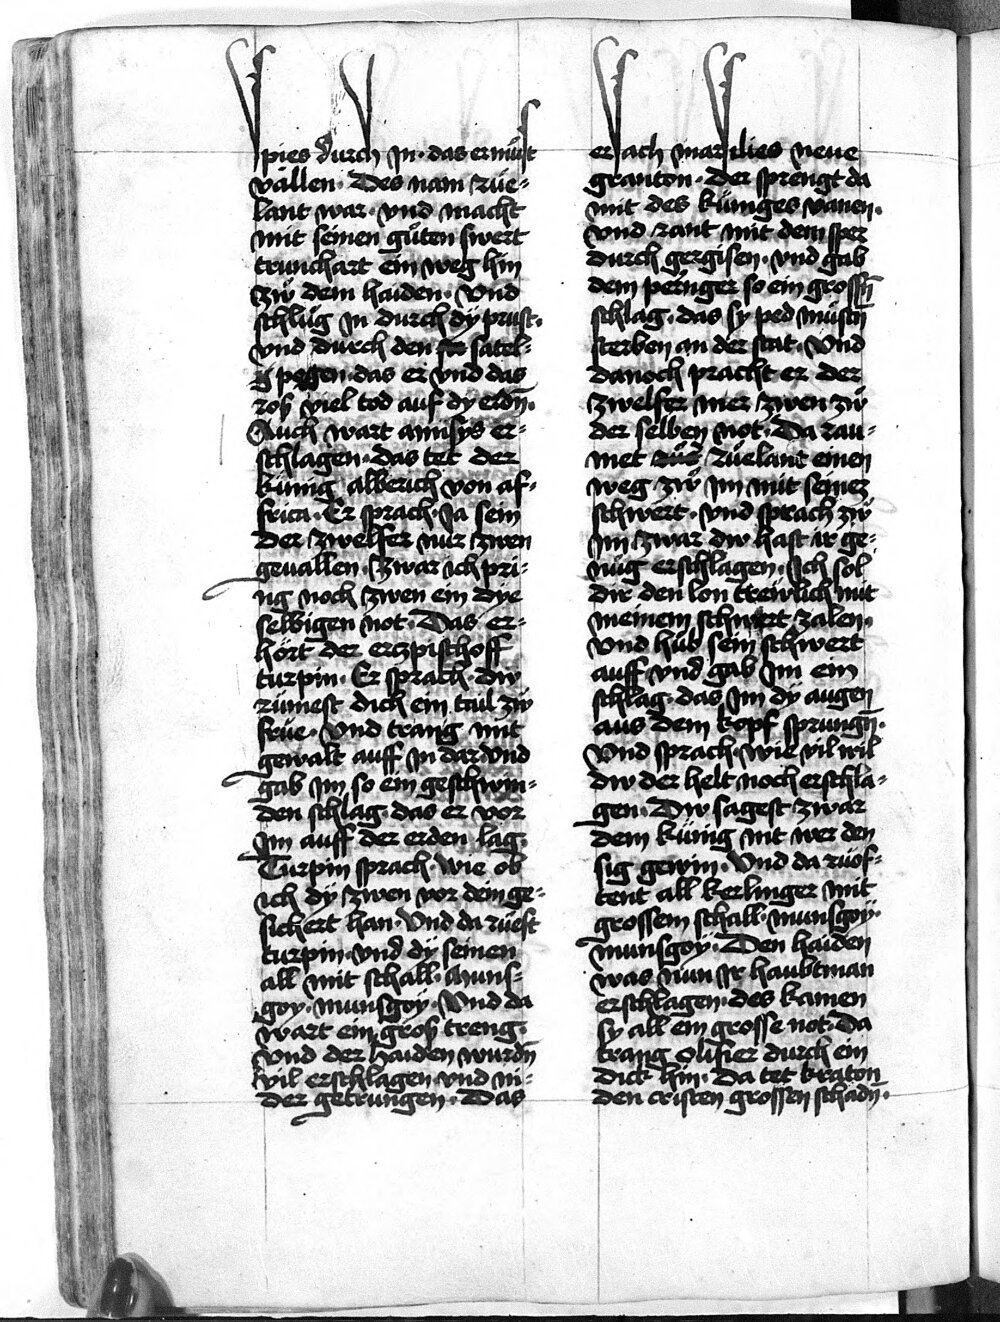 spies durch in · das er müst
vallen · Des nam rüe-
lant war · vnd macht
mit seinen güten swert
trunchart ein weg hin
zw dem haiden · vnd
schlüg in durch dÿ prust ·
vnd durch den satel-
pogen · das er vnd das
roß viel tod auf dy erdñ ·
Auch wart amsys er-
schlagen · das tet der
künig alberich von af-
frica · Er sprach · Ja sein
der zwelfer nür zwen
geuallen · Zwar ich pri-
ng noch zwen ein dye
selbigen not · Das er-
hört der erczpischoff
turpin · Er sprach · Dw
rümest dich ein tail zw
früe · Vnd trang mit
gewalt auff in dar · vnd
gab Im so ein geschwin-
den schlag · das er vor
Im auff der erden lag ·
Turpin sprach · wie ob
ich dÿ zwen vor dem ge-
sichert han · Vnd da rüeft
turpin · vnd dÿ seinen
all mit schall · Muns-
goy · munsgoy · Vnd da
wart ein groß treng ·
Vnd der haiden wurdñ
vil erschlagen · vnd ni-
der getrungen · Das
ersach marsilies neue
granton · Der sprengt da
mit des küniges vanen ·
vnd rant mit dem sper
durch gergisen · vnd gab
dem peringer so ein grossñ
schlag · das sy ped müstñ
sterben an der stat · Vnd
danoch pracht er der
zwelfer mer zwen zw
der selben not · Da rau-
met rüelant einen
weg zw Im mit seinez
schwert · vnd sprach zw
Im zwar dw hast ir ge-
nüg erschlagen · Ich sol
dir den lon trewlich mit
meinem schwert zalen ·
vnd hüb sein schwert
auff vnd gab Im ein
schlag · das Im dy augen
aus dem kopf sprungñ ·
Vnd sprach · wie vil wil
dw der helt noch erschla-
gen · Dw sagest zwar
dem künig nit wer den
sig gewin · Vnd da rüof-
tent all kerlinger mit
grossem schall · munsgoÿ ·
munsgoÿ · Den haiden
was nun Ir haubtman
erschlagen · des kamen
sy all ein grosse not · Da
trang olifier durch ein
dick hin · Da tet kraton
den cristen grossen schadñ ·